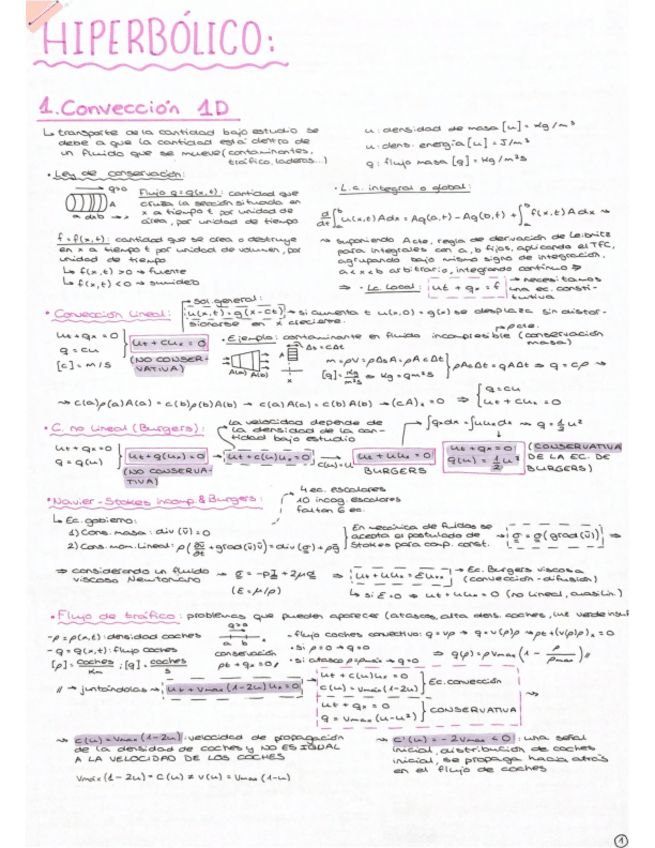 HIPERBÓLICO:
1. Convección 1D
↳ transporte de la cantidad bajo estudio se
debe a que la cantidad está dentro de
un fluido que se mueve (contaminantes,
tráfico, laderas...)
u: densidad de masa [u] = kg/m³
u: dens. energía [u] = J/m³
q: flujo masa [q] = kg/m²s
• Ley de conservación:
q>0
A
a dxb → x
Flujo q = q(x,t): cantidad que
cruza la sección situada en
x a tiempo t por unidad de
área, por unidad de tiempo
f = f(x,t): cantidad que se crea o destruye
en x a tiempo t por unidad de volumen, por
unidad de tiempo
↳ f(x,t) > 0 → fuente
↳ f(x,t) < 0 → sumidero
• L.c. integral o global:
d/dt ∫ₐᵇ u(x,t) A dx = Aq(a,t) - Aq(b,t) + ∫ₐᵇ f(x,t) A dx
suponiendo A cte, regla de derivación de Leibnitz
para integrales con a, b fijos, aplicando el TFC,
agrupando bajo mismo signo de integración,
a<x<b arbitrario, integrando continuo ⇒
⇒ • L.c. Local: ut + qx = f → necesitamos
una ec. consti-
tutiva
• Convección Lineal:
sol. general:
u(x,t) = g(x-ct) → si aumenta t u(x,0) = g(x) se desplaza sin distor-
sionarse en x creciente.
ut + qx = 0
q = cu
[c] = m/s
ut + cux = 0
(NO CONSER-
VATIVA)
• Ejemplo: contaminante en fluido incompresible (conservación
masa)
ρ cte.
A(a) A(b)
A
Δs = cΔt
x
m = ρV = ρΔsA = ρAcΔt
[q] = kg/m²s ⇒ kg = qm²s
ρAcΔt = qAΔt ⇒ q = cρ
→ c(a)ρ(a)A(a) = c(b)ρ(b)A(b) → c(a)A(a) = c(b)A(b) → (cA)x = 0 ⇒
q = cu
ut + cux = 0
• C. no Lineal (Burgers):
la velocidad depende de
la densidad de la can-
tidad bajo estudio
∫qxdx = ∫uuxdx → q = ½u²
ut + qx = 0
q = q(u)
ut + q(ux) = 0
(NO CONSERVA-
TIVA)
ut + c(u)ux = 0
c(u) = u
ut + uux = 0
BURGERS
ut + qx = 0
q(u) = ½u²
(CONSERVATIVA
DE LA EC. DE
BURGERS)
• Navier-Stokes incomp. & Burgers:
4 ec. escalares
10 incog. escalares
faltan 6 ec.
↳ Ec. gobierno:
1) Cons. masa: div(ū) = 0
2) Cons. mom. Lineal: ρ(∂ū/∂t + grad(ū)ū) = div(σ) + ρg
En mecánica de fluidos se
acepta el postulado de
Stokes para comp. const.
σ = σ(grad(ū)) ⇒
⇒ considerando un fluido
viscoso Newtoniano
σ = -pI + 2μd
(ε = μ/ρ)
⇒ ut + uux = εuxx → Ec. Burgers viscosa
(convección-difusión)
↳ si ε=0 → ut + uux = 0 (no lineal, cuasilin.)
• Flujo de tráfico: problemas que pueden aparecer (atascos, alta dens. coches, luz verde
- ρ = ρ(x,t): densidad coches
- q = q(x,t): flujo coches
[ρ] = coches/km ; [q] = coches/s
q>0
a b
conservación
ρt + qx = 0
- flujo coches convectivo: q = vρ → q = v(ρ)ρ → ρt + (v(ρ)ρ)x = 0
• si ρ=0 → q=0
• si atasco ρ=ρmáx → q=0
⇒ q(ρ) = ρVmax(1 - ρ/ρmax)
// → juntándolas → ut + Vmax(1-2u)ux = 0
ut + c(u)ux = 0
c(u) = Vmáx(1-2u)
Ec. convección
ut + qx = 0
q = Vmax(u-u²)
CONSERVATIVA
→ c(u) = Vmax(1-2u): velocidad de propagación
de la densidad de coches y NO ES IGUAL
A LA VELOCIDAD DE LOS COCHES
Vmáx(1-2u) = c(u) ≠ v(u) = Vmax(1-u)
→ c'(u) = -2Vmax < 0: una señal
inicial, distribución de coches
inicial, se propaga hacia atrás
en el flujo de coches
1